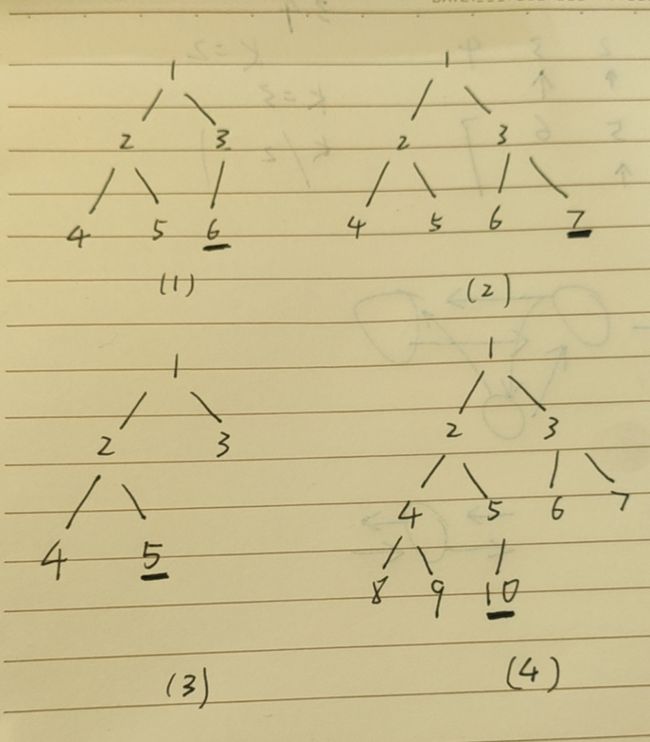 1
2 3
4 5 6
(1)
1
2 3
4 5 6 7
(2)
1
2 3
4 5
(3)
1
2 3
4 5 6 7
8 9 10
(4)